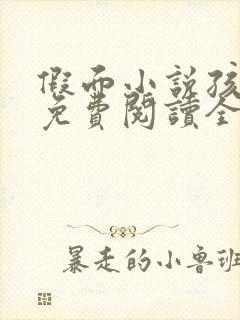 假面小説孩
免費閱讀全
暴走的小魯班